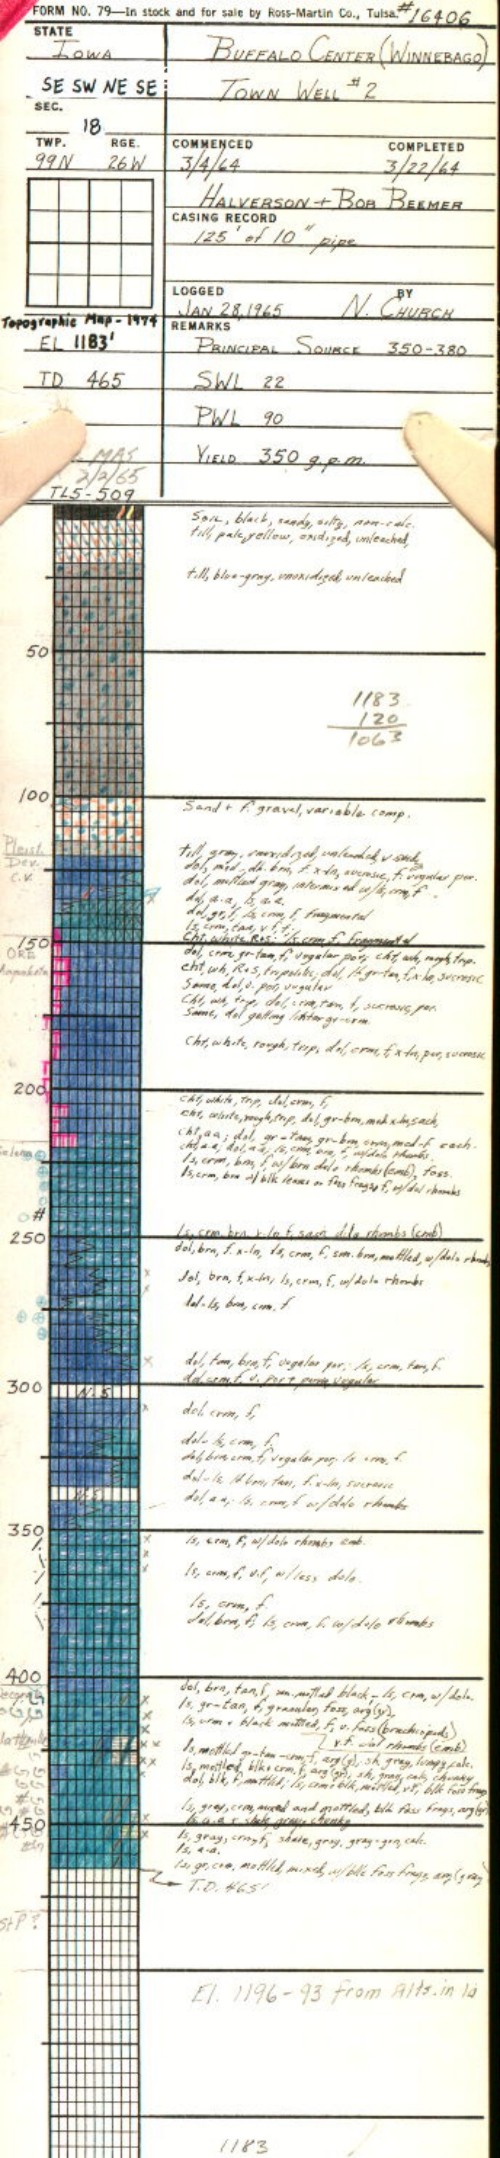 FORM NO. 79—In stock and for sale by Ross-Martin Co., Tulsa. #16406
STATE
IOWA
BUFFALO CENTER (WINNEBAGO)
SE SW NE SE
TOWN WELL #2
SEC.
18
TWP. RGE.
99N 26W
COMMENCED COMPLETED
3/4/64 3/22/64
HALVERSON + BOB BEEMER
CASING RECORD
125' of 10" pipe
LOGGED BY
JAN 28, 1965 N. CHURCH
Topographic Map - 1974
REMARKS
EL 1183'
PRINCIPAL SOURCE 350-380
TD 465
SWL 22
PWL 90
MAS
2/2/65
YIELD 350 g.p.m.
TLS-509
Soil, black, sandy, silty, non-calc.
till, pale yellow, oxidized, unleached,
till, blue-gray, unoxidized, unleached
50
1183
120
1063
100
Sand + f. gravel, variable comp.
Pleist.
Dev.
C.V.
till, gray, unoxidized, unleached
dol, med., dk. brn, f. x-ln, sucrosic, f. vugular por.
dol, mottled gray, intermixed w/ ls, crm, f
dol, a-a, ls, a-a.
dol, gr, f, ls, crm, f, fragmental
ls, crm, tan, v.f, f.
Cht, white R+S: ls crm, f. fragmental
150
dol, crm, gr-tan, f, vugular por; cht, wh, rough, trip.
cht, wh, R+S, tripolitic, dol, lt gr-tan, f, x-ln, sucrosic
Same, dol, v. por, vugular
Cht, wh, trip, dol, crm, tan, f, sucrosic, por.
Same, dol getting lighter gr-crm.
Cht, white, rough, trip, dol, crm, f, x-ln, por, sucrosic
200
cht, white, trip, dol, crm, f,
cht, white, rough, trip, dol, gr-brn, med x-ln, sach,
cht, a-a; dol, gr-tan, gr-brn, crm, med-f sach.
cht, a-a, dol, a-a, ls, crm, brn, f, w/dolo rhombs.
ls, crm, brn, f, w/brn dolo rhombs (emb), foss.
ls, crm, brn w/ blk lenses or foss frags, f, w/dol rhombs
#
250
ls, crm, brn, x-ln f, sach, dolo rhombs (emb)
dol, brn, f. x-ln, ls, crm, f, sm. brn, mottled, w/dolo rhombs
dol, brn, f, x-ln; ls, crm, f, w/dolo rhombs
dol-ls, brn, crm, f
dol, tan, brn, f, vugular por; ls, crm, tan, f.
dol, crm, f, v. por + porous, vugular
300
N.S
dol, crm, f,
dol-ls, crm, f.
dol, brn, crm, f, vugular por; ls crm, f.
dol-ls, lt brn, tan, f. x-ln, sucrosic
N.S
dol, a-a; ls, crm, f w/ dolo rhombs
350
ls, crm, f, w/dolo rhombs emb.
ls, crm, f, v.f, w/less dolo.
ls, crm, f
dol, brn, f; ls, crm, f. w/dolo rhombs
400
dol, brn, tan, f, sm. mottled black - ls, crm, w/ dolo.
ls, gr-tan, f, granular, foss, arg (gr),
ls, crm + black mottled, f, v. foss (brachiopods)
v.f. dol rhombs (emb)
ls, mottled gr-tan-crm, f, arg (gr), sh, gray, lumpy, calc.
ls, mottled, blk + crm, f, arg (gr); sh, gray, calc, chunky
dol, blk, f, mottled; ls, crm + blk, mottled, v.f, blk foss frags
ls, gray, crm, mixed and mottled, blk foss frags, arg (gr)
450
ls, a-a + shale, gray, chunky
ls, gray, crm, f, shale, gray, gray-grn, calc.
ls, a-a.
ls, gr, crm, mottled, mixed, w/ blk foss frags, arg (gray)
T.D. 465'
St P ?
El. 1196-93 from Alts. in Ia
1183